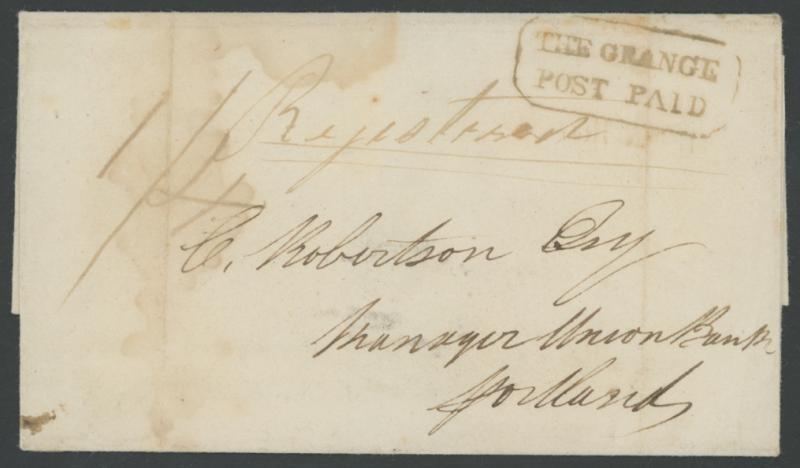 THE GRANGE
POST PAID
1/4
Registered
C. Robertson Esq
Manager Union Bank
Portland